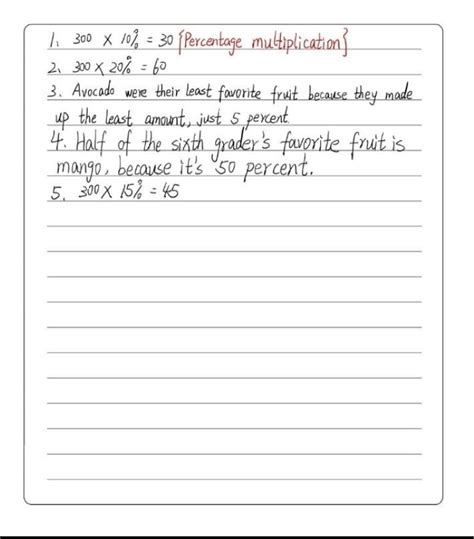 1、300 × 10% = 30 {Percentage multiplication}
2、300 × 20% = 60
3、Avocado were their least favorite fruit because they made
up the least amount, just 5 percent
4. Half of the sixth grader's favorite fruit is
mango, because it's 50 percent.
5、300 × 15% = 45